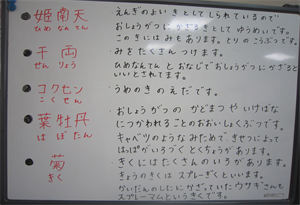 姫南天
ひめなんてん
えんぎのよいきとしてしられているので
おしょうがつにかざるきとしてゆうめいです。
このきにはみもあります。とりのこうぶつです。
千両
せんりょう
みをたくさんつけます。
ひめなんてんとおなじでおしょうがつにかざると
いいとされてます。
コクセン
こくせん
うめのきのえだです。
葉牡丹
はぼたん
おしょうがつのかどまつやいけばな
につかがわれることのおおいしょくぶつです。
キャベツのようなみためできせつによって
はっぱがいろづくとくちょうがあります。
菊
きく
きくにはたくさんのいろがあります。
きょうのきくはスプレーぎくといいます。
かいだんのしたにかざっていたウサギさんも
スプレーマムというきくです。